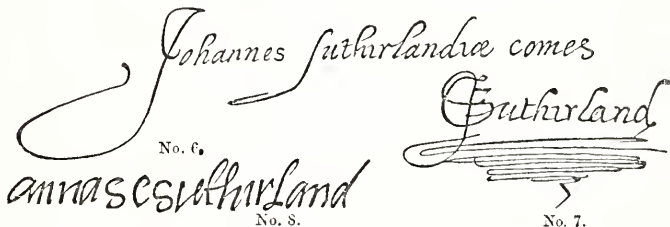 Johannes Suthirlandiæ comes
Suthirland
No. 6.
annas c suthirland
No. 8.
No. 7.